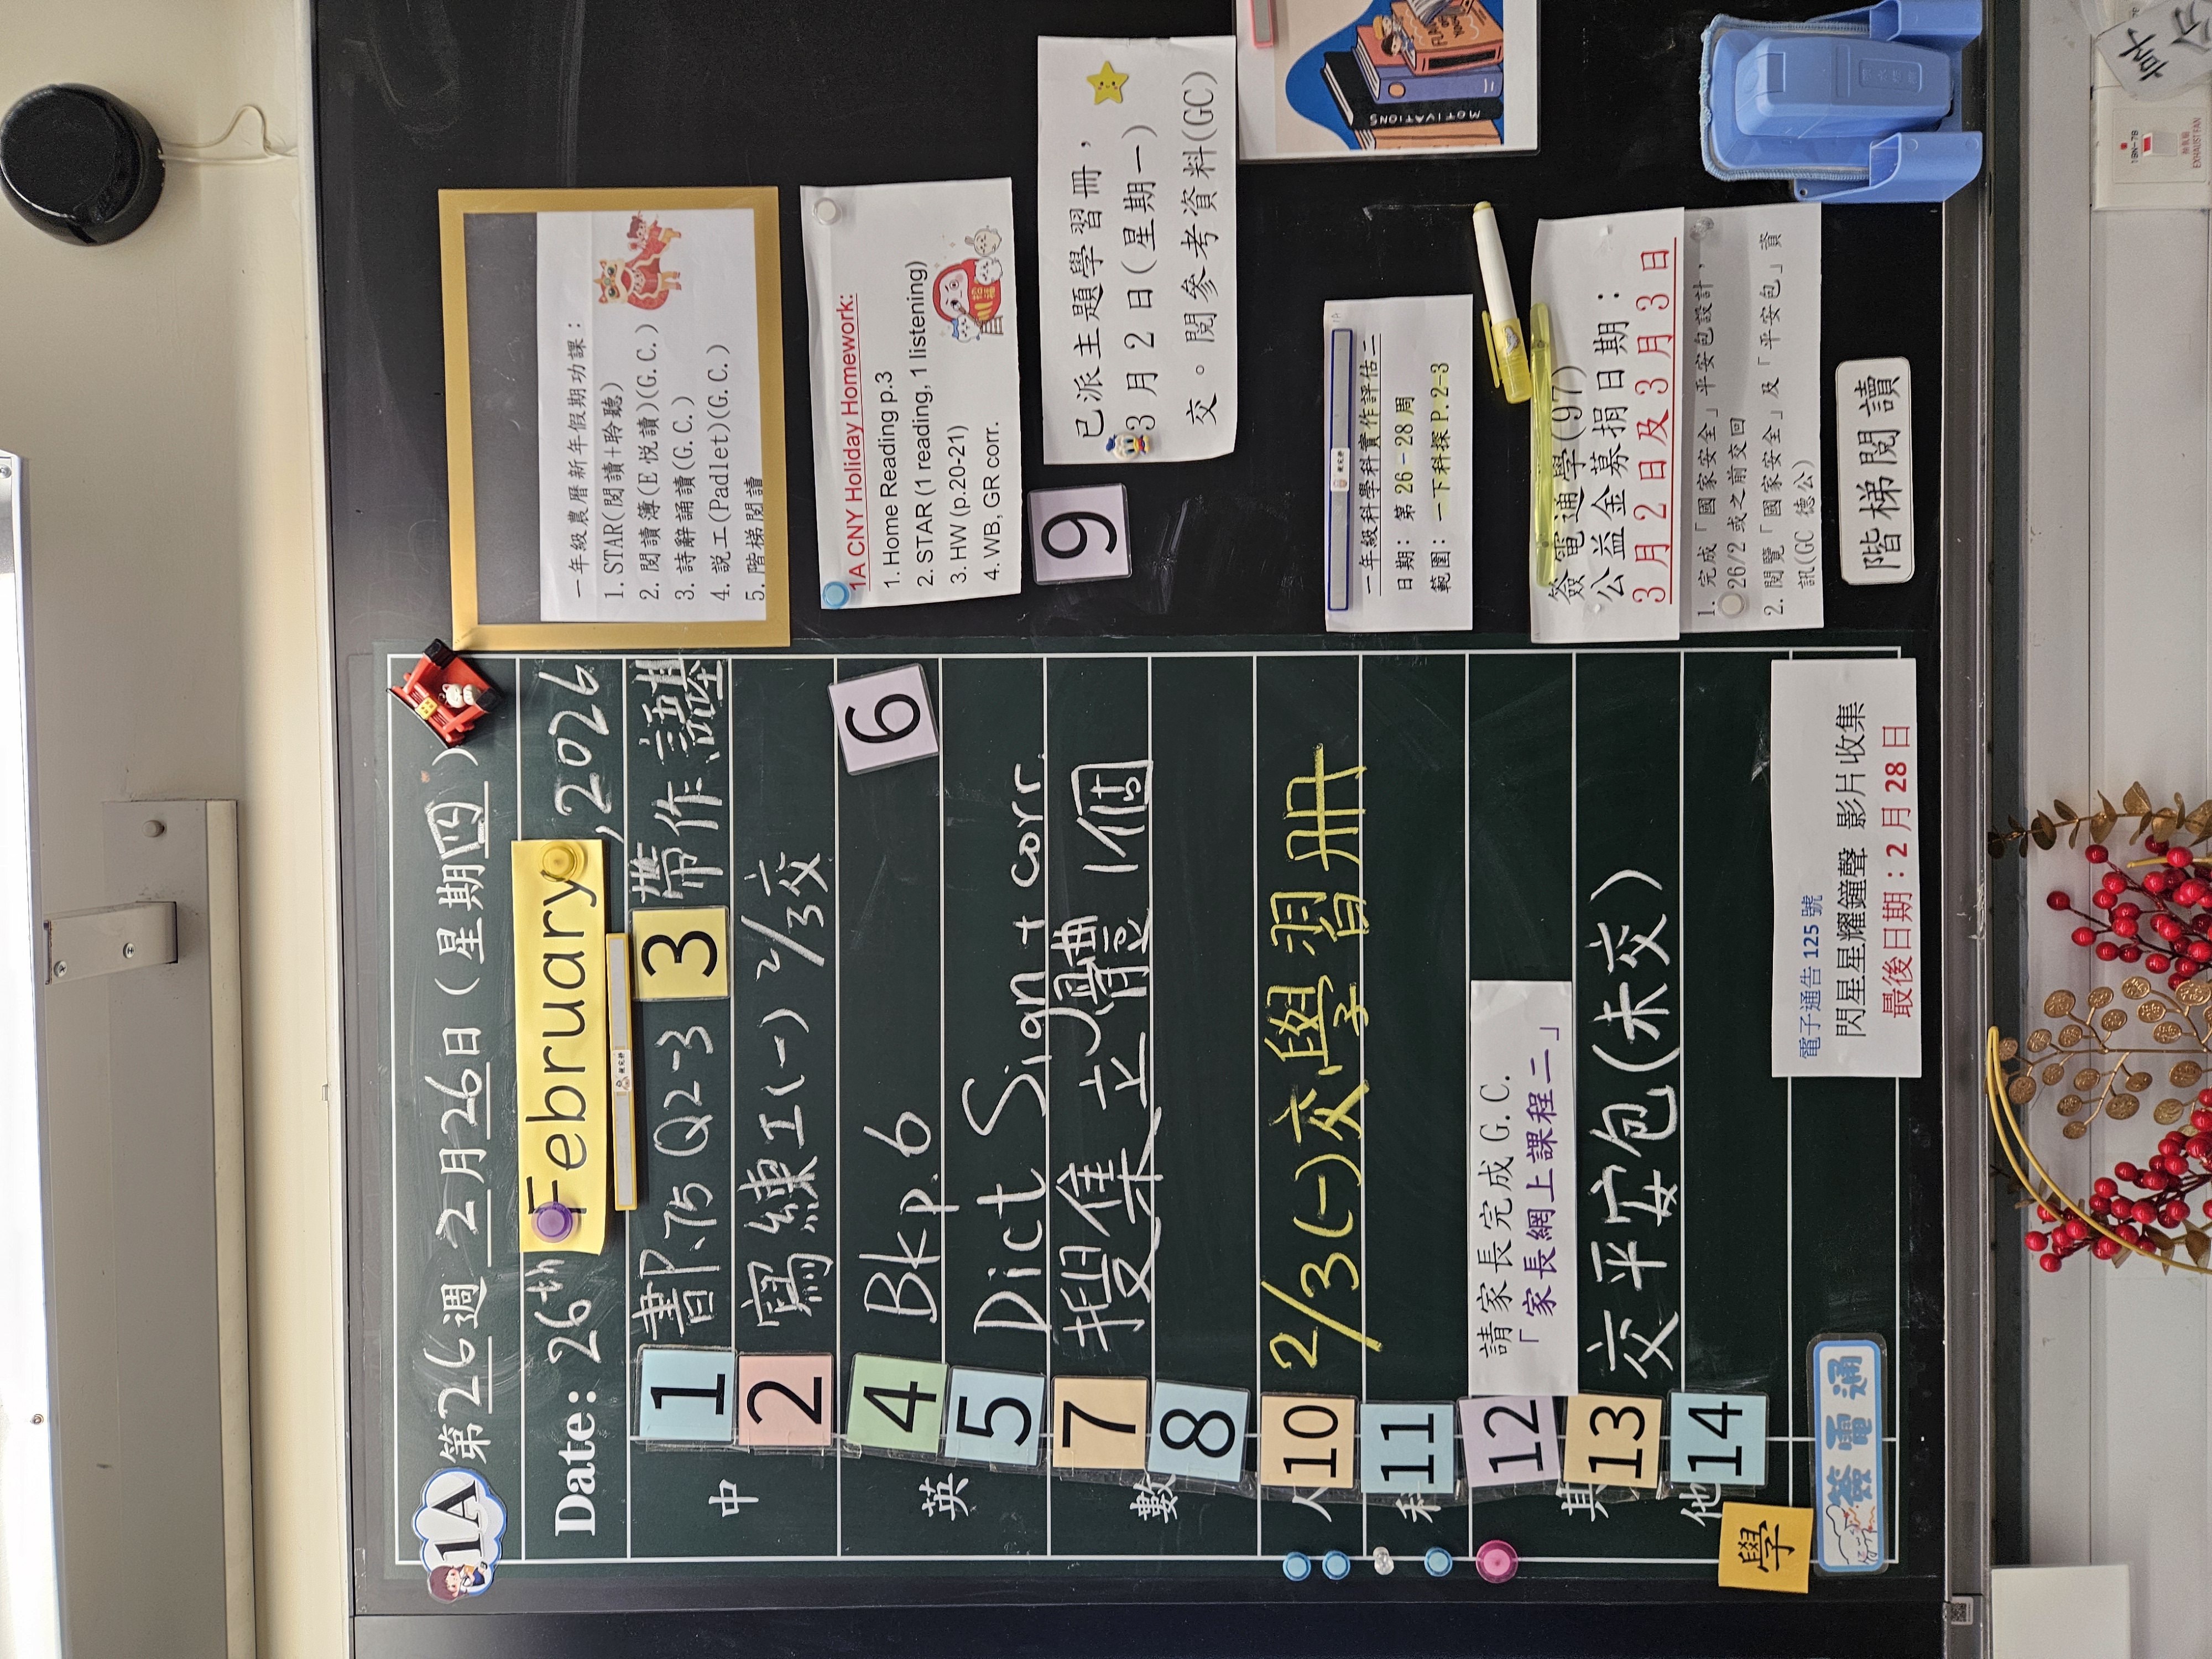 1A
第26週 2月26日(星期四)
Date: 26th February, 2026
中
1 書P.75 Q2-3
3 帶作諾基
2 寫練工(一) 2/3交
英
4 Bk p.6
6
5 Dict Sign + corr.
數
7 搜集立體1個
8
人
10 2/3(一)交學習冊
科
11
其他
12 請家長完成 G.C.
「家長網上課程二」
13 交平安包(未交)
14
學
簽電通
電子通告 125 號
閃星星耀鐘聲 影片收集
最後日期：2 月 28 日
一年級農曆新年假期功課：
1. STAR(閱讀+聆聽)
2. 閱讀簿(E 悅讀)(G.C.)
3. 詩辭誦讀(G.C.)
4. 說工(Padlet)(G.C.)
5. 階梯閱讀
1A CNY Holiday Homework:
1. Home Reading p.3
2. STAR (1 reading, 1 listening)
3. HW (p.20-21)
4. WB, GR corr.
9
已派主題學習冊，
3 月 2 日(星期一)
交。閱參考資料(GC)
一年級科學科實作評估二
日期：第 26-28 周
範圍：一下科探 P.2-3
簽電通學(97)
公益金募捐日期：
3 月 2 日及 3 月 3 日
1. 完成「國家安全」平安包設計，
26/2 或之前交回
2. 閱覽「國家安全」及「平安包」資
訊(GC 德公)
階梯閱讀
MOTIVATIONS
EXHAUST FAN